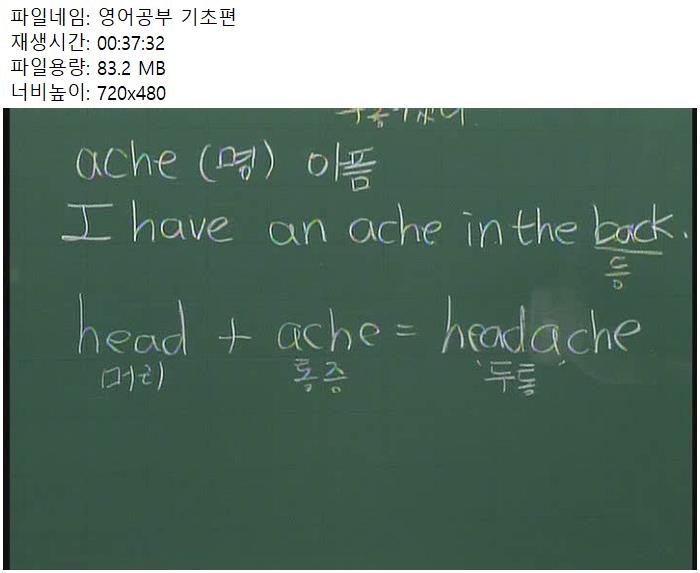 파일네임: 영어공부 기초편
재생시간: 00:37:32
파일용량: 83.2 MB
너비높이: 720x480
ache (명) 아픔
I have an ache in the back.
등
head + ache = headache
머리 통증 두통